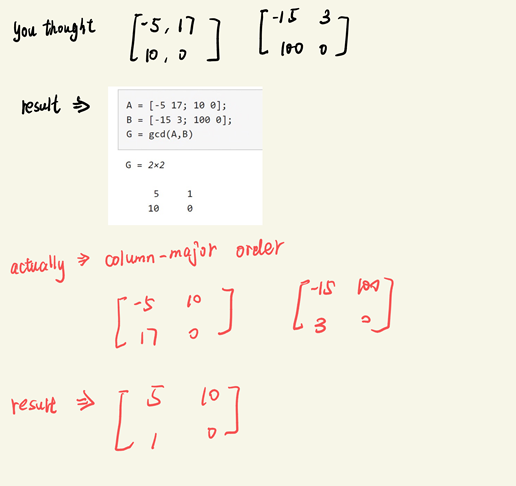 you thought [-5, 17 [-15 3
10, 0] 100 0]
result ⇒
A = [-5 17; 10 0];
B = [-15 3; 100 0];
G = gcd(A,B)
G = 2×2
5 1
10 0
actually ⇒ column-major order
[-5 10 [-15 100
17 0] 3 0]
result ⇒ [5 10
1 0]